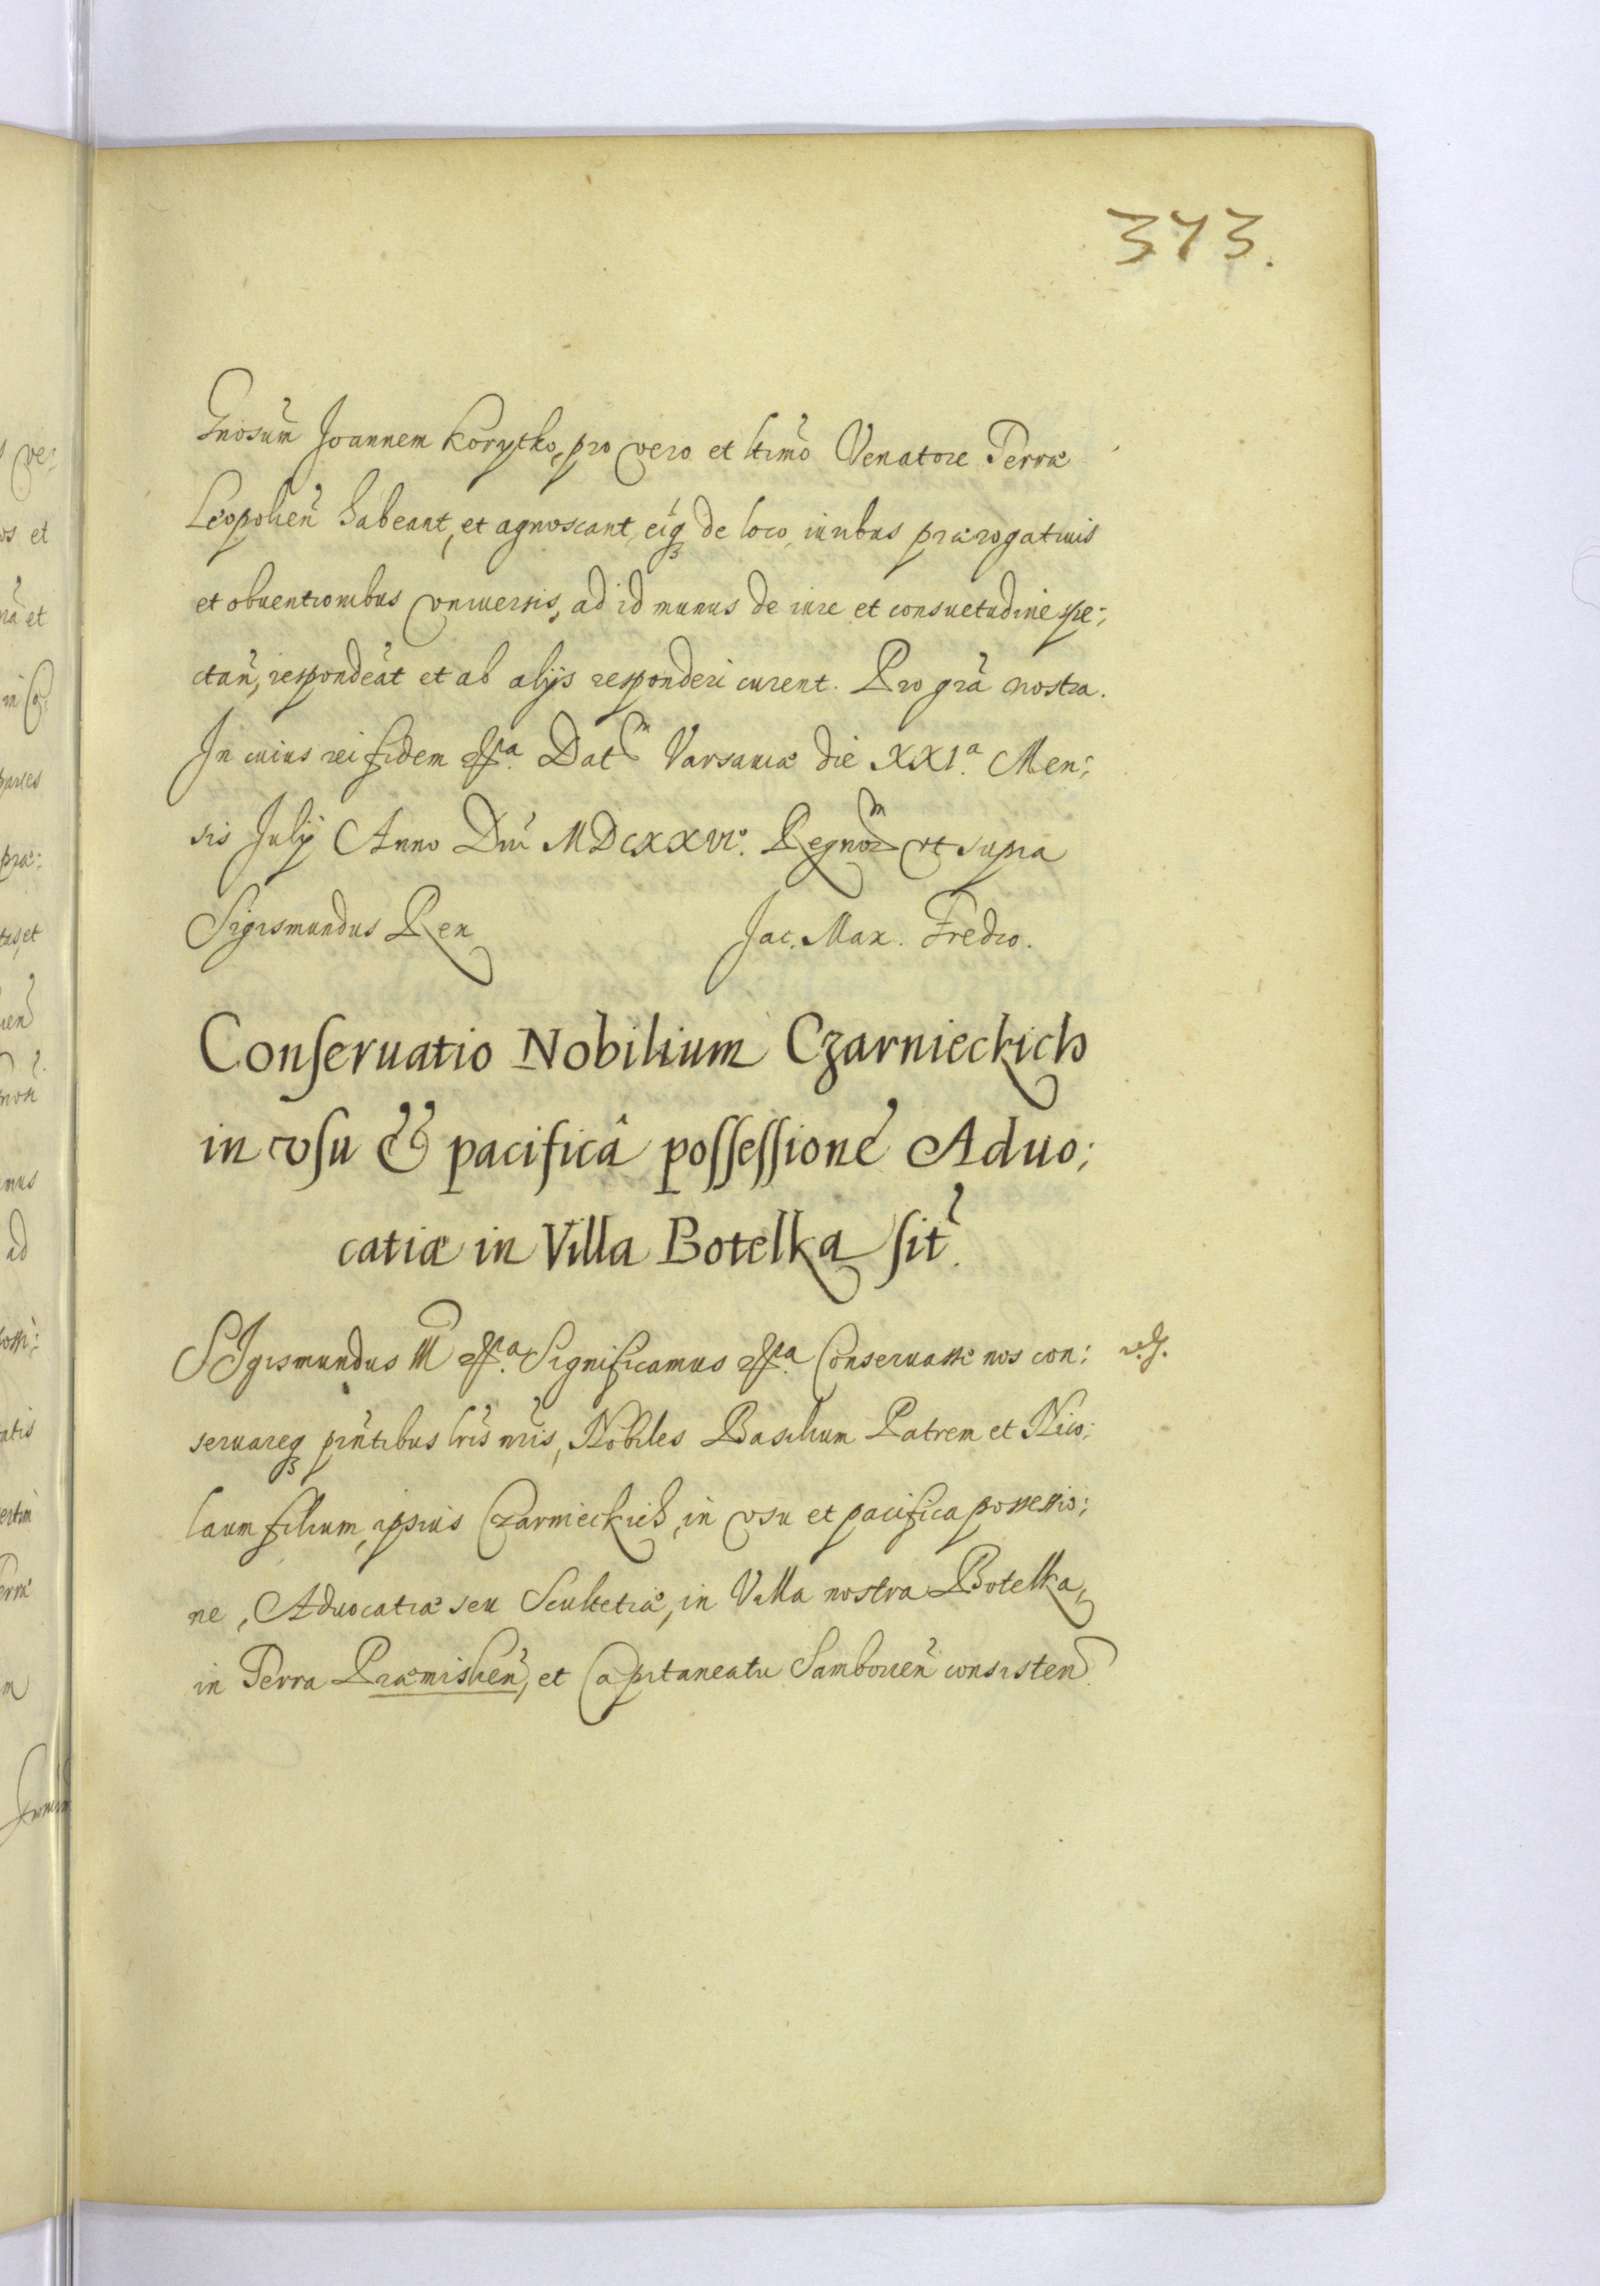 373.
Gnosum̃ Joannem Korytko, pro vero et ltimõ Venatore Terræ
Leopolien̄ habeant, et agnoscant, eiq3 de loco, iuribus prærogatiuis
et obuentionibus vniuersis, ad id munus de iure et consuetudine spe:
ctan̄, respondeãt et ab alijs responderi curent. Pro grã nostra.
In cuius rei fidem etca. Datm Varsauiæ die XXIa. Men:
sis Julij Anno Dni MDCXXVIo. Regnorm vt supra
Sigismundus Rex Jac. Max. Fredro.
Conseruatio Nobilium Czarnieckich
in vsu & pacificâ possessione Aduo:
catiæ in Villa Botelka sit.
SIgismundus III etca. Significamus etca. Conseruasse nos con:
seruareq3 pñtibus lris nris, Nobiles Basilium Patrem et Nico:
laum filium, ipsius Czarnieckich, in vsu et pacifica possessio:
ne, Aduocatiæ seu Scultetiæ, in Villa nostra Botelka,
in Terra Præmislien̄, et Capitaneatu Samborien̄ consisten.